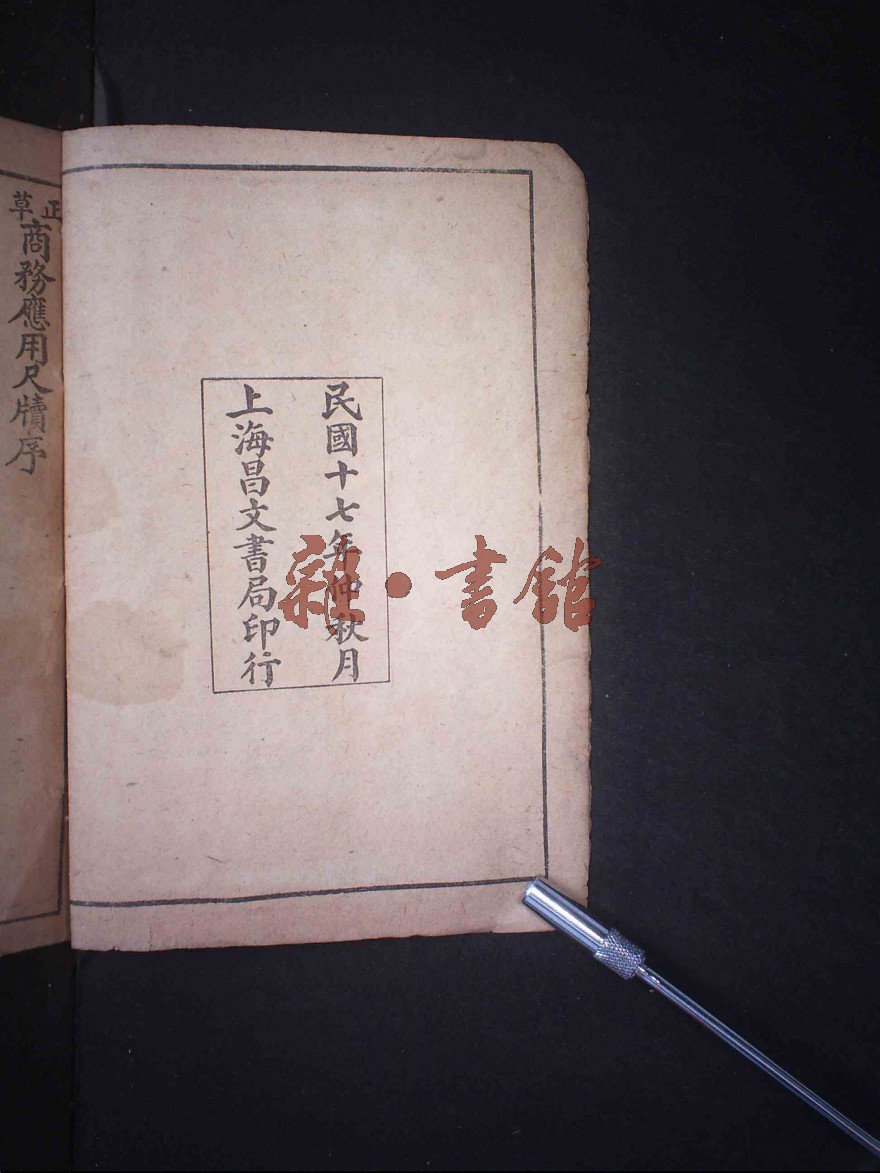 民國十七年仲秋月
上海昌文書局印行
正草商務應用尺牘序
雜·書館